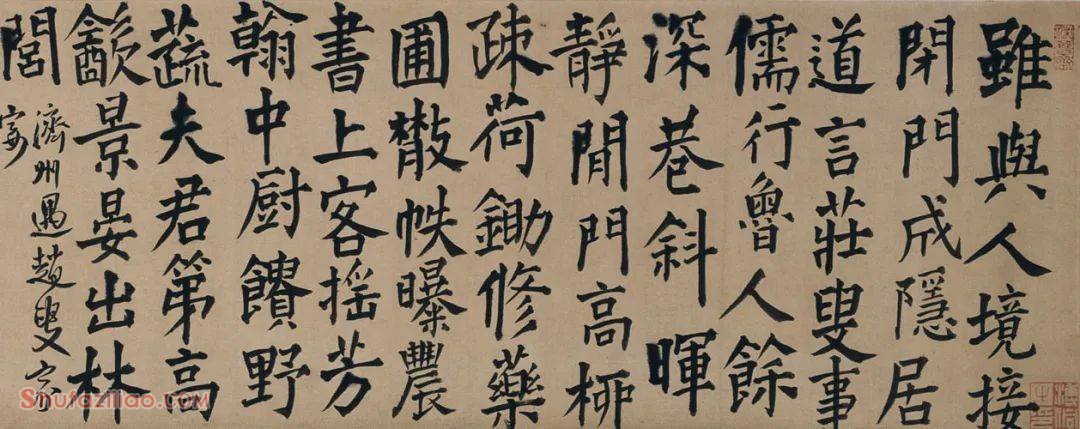 雖與人境接
閉門成隱居
道言莊叟事
儒行魯人餘
深巷斜暉
靜閒門高柳
疎荷鋤修藥
圃散帙曝農
書上客摇芳
翰中厨饋野
蔬夫君第高
㱃景晏出林
閭
濟州過趙叟家
宴
Shufaziliao.com